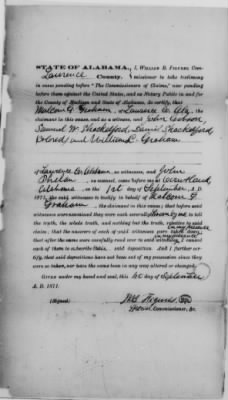 STATE OF ALABAMA, I, WILLIAM B. FIGURES, Com-
Lawrence County, missioner to take testimony
in cases pending before "The Commissioners of Claims," now pending
before them against the United States, and as Notary Public in and for
the County of Madison and State of Alabama, do certify, that
Malcom G. Graham
the claimant in this cause, and as a witness, and John
Samuel W. Shackelford, Daniel Shackelford
Colored) and William C. Graham
of Lawrence Co. Alabama, as witness, and John
Phelan as counsel, came before me at Courtland
Alabama on the 1st day of September, A. D.
1871, the said witnesses to testify in behalf of Malcom G
Graham the claimant in this cause; that before said
witnesses were examined they were each severally sworn by me to tell
the truth, the whole truth, and nothing but the truth, relative to said
claim; that the answers of each of said witnesses were taken down
in my presence
that after the same were carefully read over to said witnesses, I caused
each of them to subscribe said deposition and I further cer-
tify, that said depositions have not been out of my possession since they
were so taken, nor have the same been in any way altered or changed.
Given under my hand and seal, this 1st day of September
A. D. 1871.
(Signed) Wm B. Figures
Special Commissioner, &c.